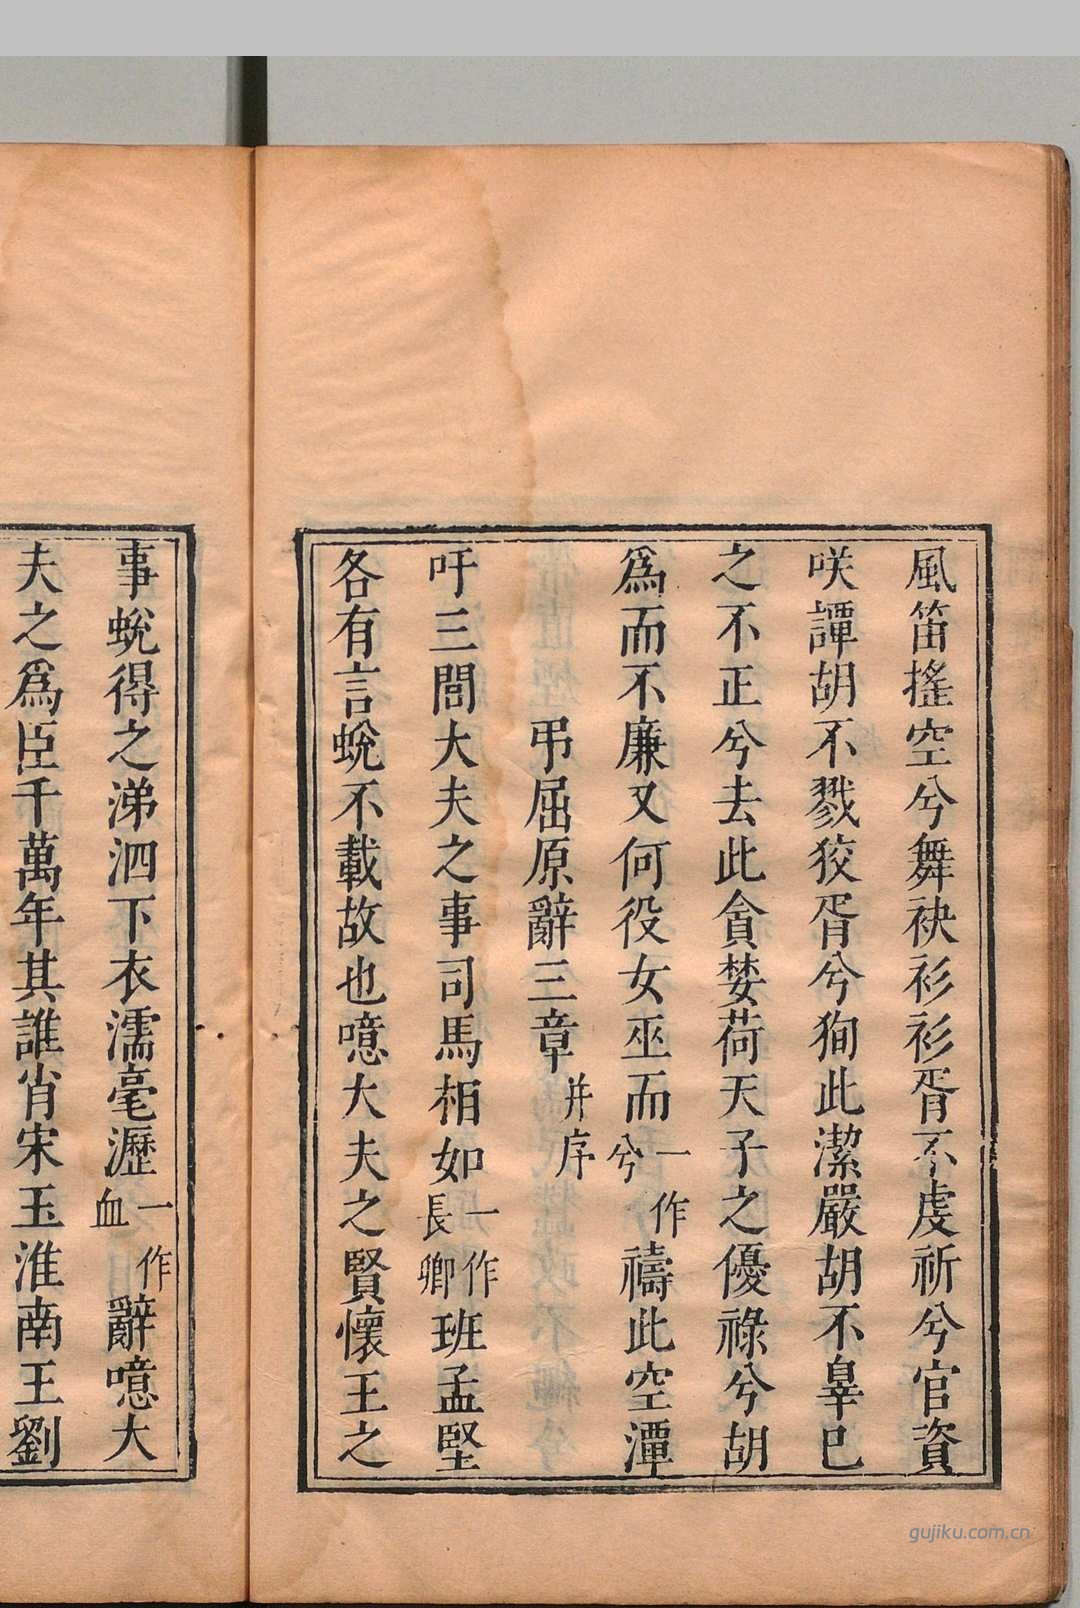 風笛搖空兮舞袂衫衫胥不虔祈兮官資
咲譚胡不戮狡胥兮狥此潔嚴胡不辠巳
之不正兮去此貪婪荷天子之優祿兮胡
爲而不廉又何役女巫而一作兮禱此空潭
弔屈原辭三章并序
吁三閭大夫之事司馬相如一作長卿班孟堅
各有言蛻不載故也噫大夫之賢懷王之
事蛻得之涕泗下衣濡毫瀝一作血辭噫大
夫之爲臣千萬年其誰肖宋玉淮南王劉
gujiku.com.cn